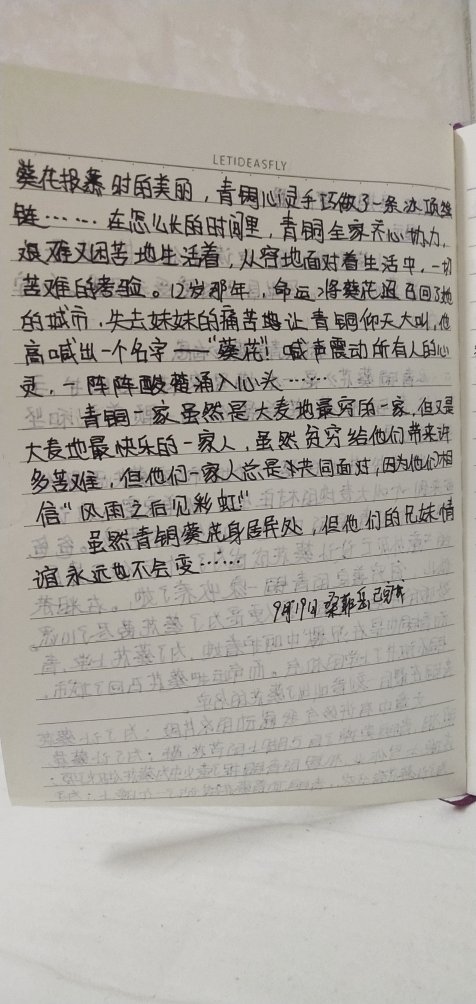 LETIDEASFLY
葵花报幕时的美丽，青铜心灵手巧做了一条冰项
链……在怎么长的时间里，青铜全家齐心协力，
艰难又困苦地生活着，从容地面对着生活中，一切
苦难的考验。12岁那年，命运将葵花召回了她
的城市，失去妹妹的痛苦让青铜仰天大叫，他
高喊出一个名字——“葵花！喊声震动所有人的心
灵，一阵阵酸楚涌入心头……
青铜一家虽然是大麦地最穷的一家，但又是
大麦地最快乐的一家人，虽然贫穷给他们带来许
多苦难，但他们一家人总是共同面对，因为他们相
信“风雨之后见彩虹”
虽然青铜葵花身居异处，但他们的兄妹情
谊永远也不会变……
9月19日